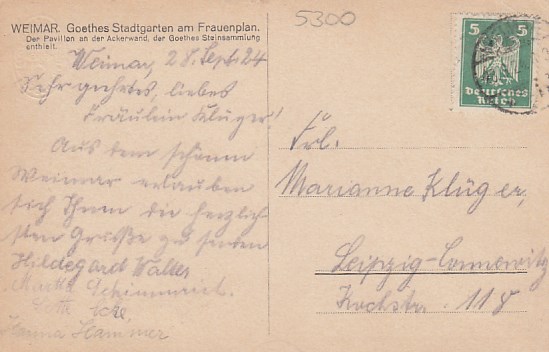 5300
WEIMAR. Goethes Stadtgarten am Frauenplan.
Der Pavillon an der Ackerwand, der Goethes Steinsammlung
enthielt.
5 5
Deutsches
Reich
Weimar, 28. Sept. 24
Sehr geehrtes, liebes
Fräulein Klüger!
Aus dem schönen
Weimar erlauben
sich Ihnen die herzlich
sten Grüße zu senden
Hildegard Walter
Martha
Hanna Hammer
Frl.
Marianne Klüger,
Leipzig-Connewitz
Kochstr. 118